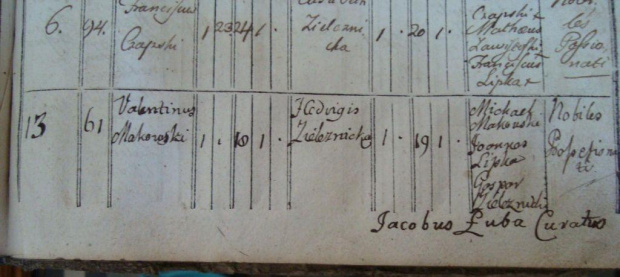 Franciscus
Czapski
6. 94. 1 23 24 1
Zielezni
cka
1 . 20 1 .
Czapski
Matheus
Franciscus
Lipka
les
nati
13 61
Valentinus
Makowski
1 . 18 1 .
Hedvigis
Zieleznicka
1 . 19 1 .
Michael
Makowski
Joannes
Lipka
Gaspar
Zieleznicki
Nobiles
Jacobus Łuba Curatus